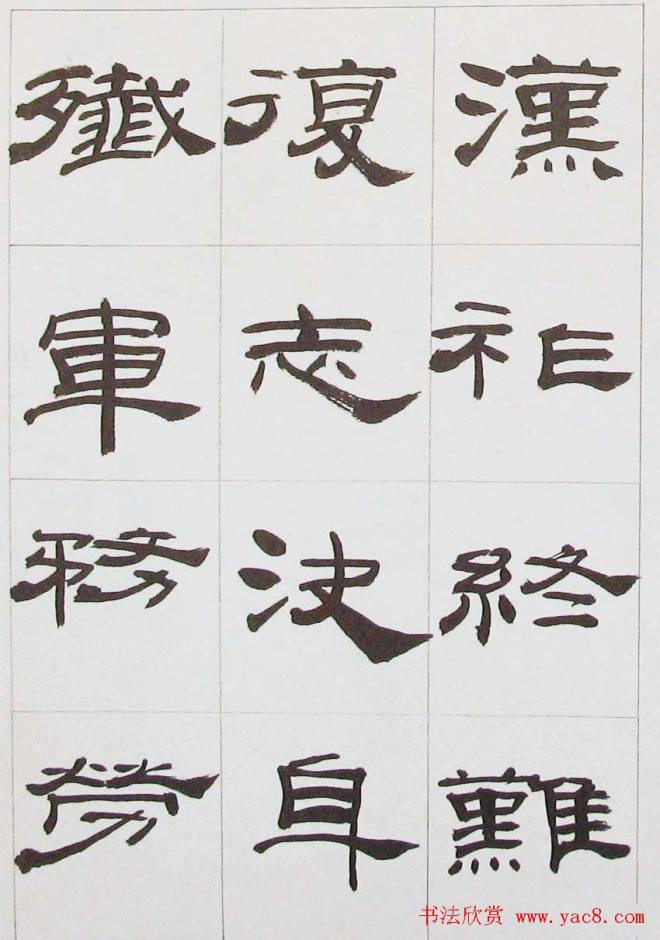 漢祚終難
復志決身
殲軍務勞
书法欣赏 www.yac8.com